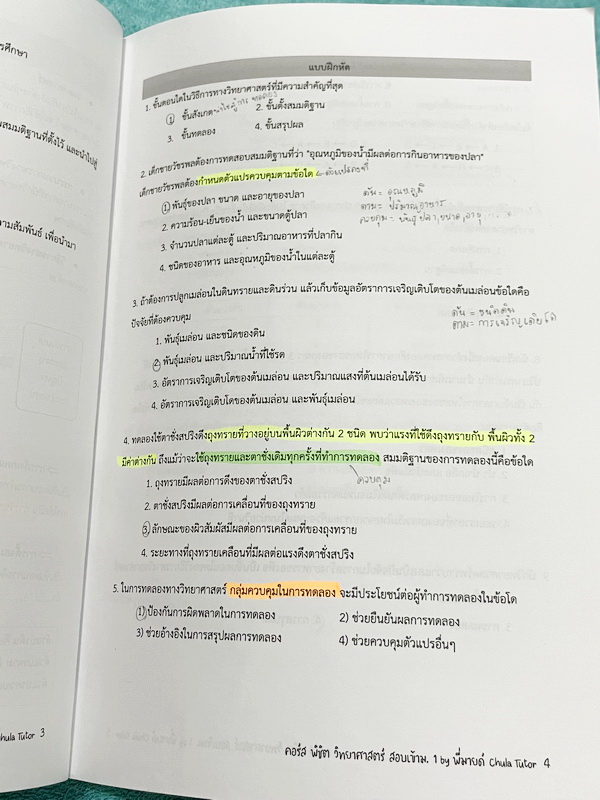 รศึกษา
สมมติฐานที่ตั้งไว้ และนำไปสู่
ามสัมพันธ์ เพื่อนำมา
Chula Tutor 3
แบบฝึกหัด
1. ขั้นตอนใดในวิธีการทางวิทยาศาสตร์ที่มีความสำคัญที่สุด
1. ขั้นสังเกต 2. ขั้นตั้งสมมติฐาน
3. ขั้นทดลอง 4. ขั้นสรุปผล
2. เด็กชายวัชรพลต้องการทดสอบสมมติฐานที่ว่า "อุณหภูมิของน้ำมีผลต่อการกินอาหารของปลา"
เด็กชายวัชรพลต้องกำหนดตัวแปรควบคุมตามข้อใด
1 พันธุ์ของปลา ขนาด และอายุของปลา
2. ความร้อน-เย็นของน้ำ และขนาดตู้ปลา
3. จำนวนปลาแต่ละตู้ และปริมาณอาหารที่ปลากิน
4. ชนิดของอาหาร และอุณหภูมิของน้ำในแต่ละตู้
ต้น = อุณหภูมิ
ตาม = ปริมาณอาหาร
ควบคุม = พันธุ์ปลา, ขนาด, อายุ ....
3. ถ้าต้องการปลูกเมล่อนในดินทรายและดินร่วน แล้วเก็บข้อมูลอัตราการเจริญเติบโตของต้นเมล่อนข้อใดคือ
ปัจจัยที่ต้องควบคุม
1. พันธุ์เมล่อน และชนิดของดิน
2 พันธุ์เมล่อน และปริมาณน้ำที่ใช้รด
3. อัตราการเจริญเติบโตของต้นเมล่อน และปริมาณแสงที่ต้นเมล่อนได้รับ
4. อัตราการเจริญเติบโตของต้นเมล่อน และพันธุ์เมล่อน
ต้น = ชนิดดิน
ตาม = การเจริญเติบโต
4. ทดลองใช้ตาชั่งสปริงดึงถุงทรายที่วางอยู่บนพื้นผิวต่างกัน 2 ชนิด พบว่าแรงที่ใช้ดึงถุงทรายกับ พื้นผิวทั้ง 2
มีค่าต่างกัน ถึงแม้ว่าจะใช้ถุงทรายและตาชั่งเดิมทุกครั้งที่ทำการทดลอง สมมติฐานของการทดลองนี้คือข้อใด
ควบคุม
1. ถุงทรายมีผลต่อการดึงของตาชั่งสปริง
2. ตาชั่งสปริงมีผลต่อการเคลื่อนที่ของถุงทราย
3 ลักษณะของผิวสัมผัสมีผลต่อการเคลื่อนที่ของถุงทราย
4. ระยะทางที่ถุงทรายเคลื่อนที่มีผลต่อแรงดึงตาชั่งสปริง
5. ในการทดลองทางวิทยาศาสตร์ กลุ่มควบคุมในการทดลอง จะมีประโยชน์ต่อผู้ทำการทดลองในข้อใด
1) ป้องกันการผิดพลาดในการทดลอง 2) ช่วยยืนยันผลการทดลอง
3) ช่วยอ้างอิงในการสรุปผลการทดลอง 4) ช่วยควบคุมตัวแปรอื่นๆ
คอร์ส พิชิต วิทยาศาสตร์ สอบเข้าม. 1 by พี่มายด์ Chula Tutor 4